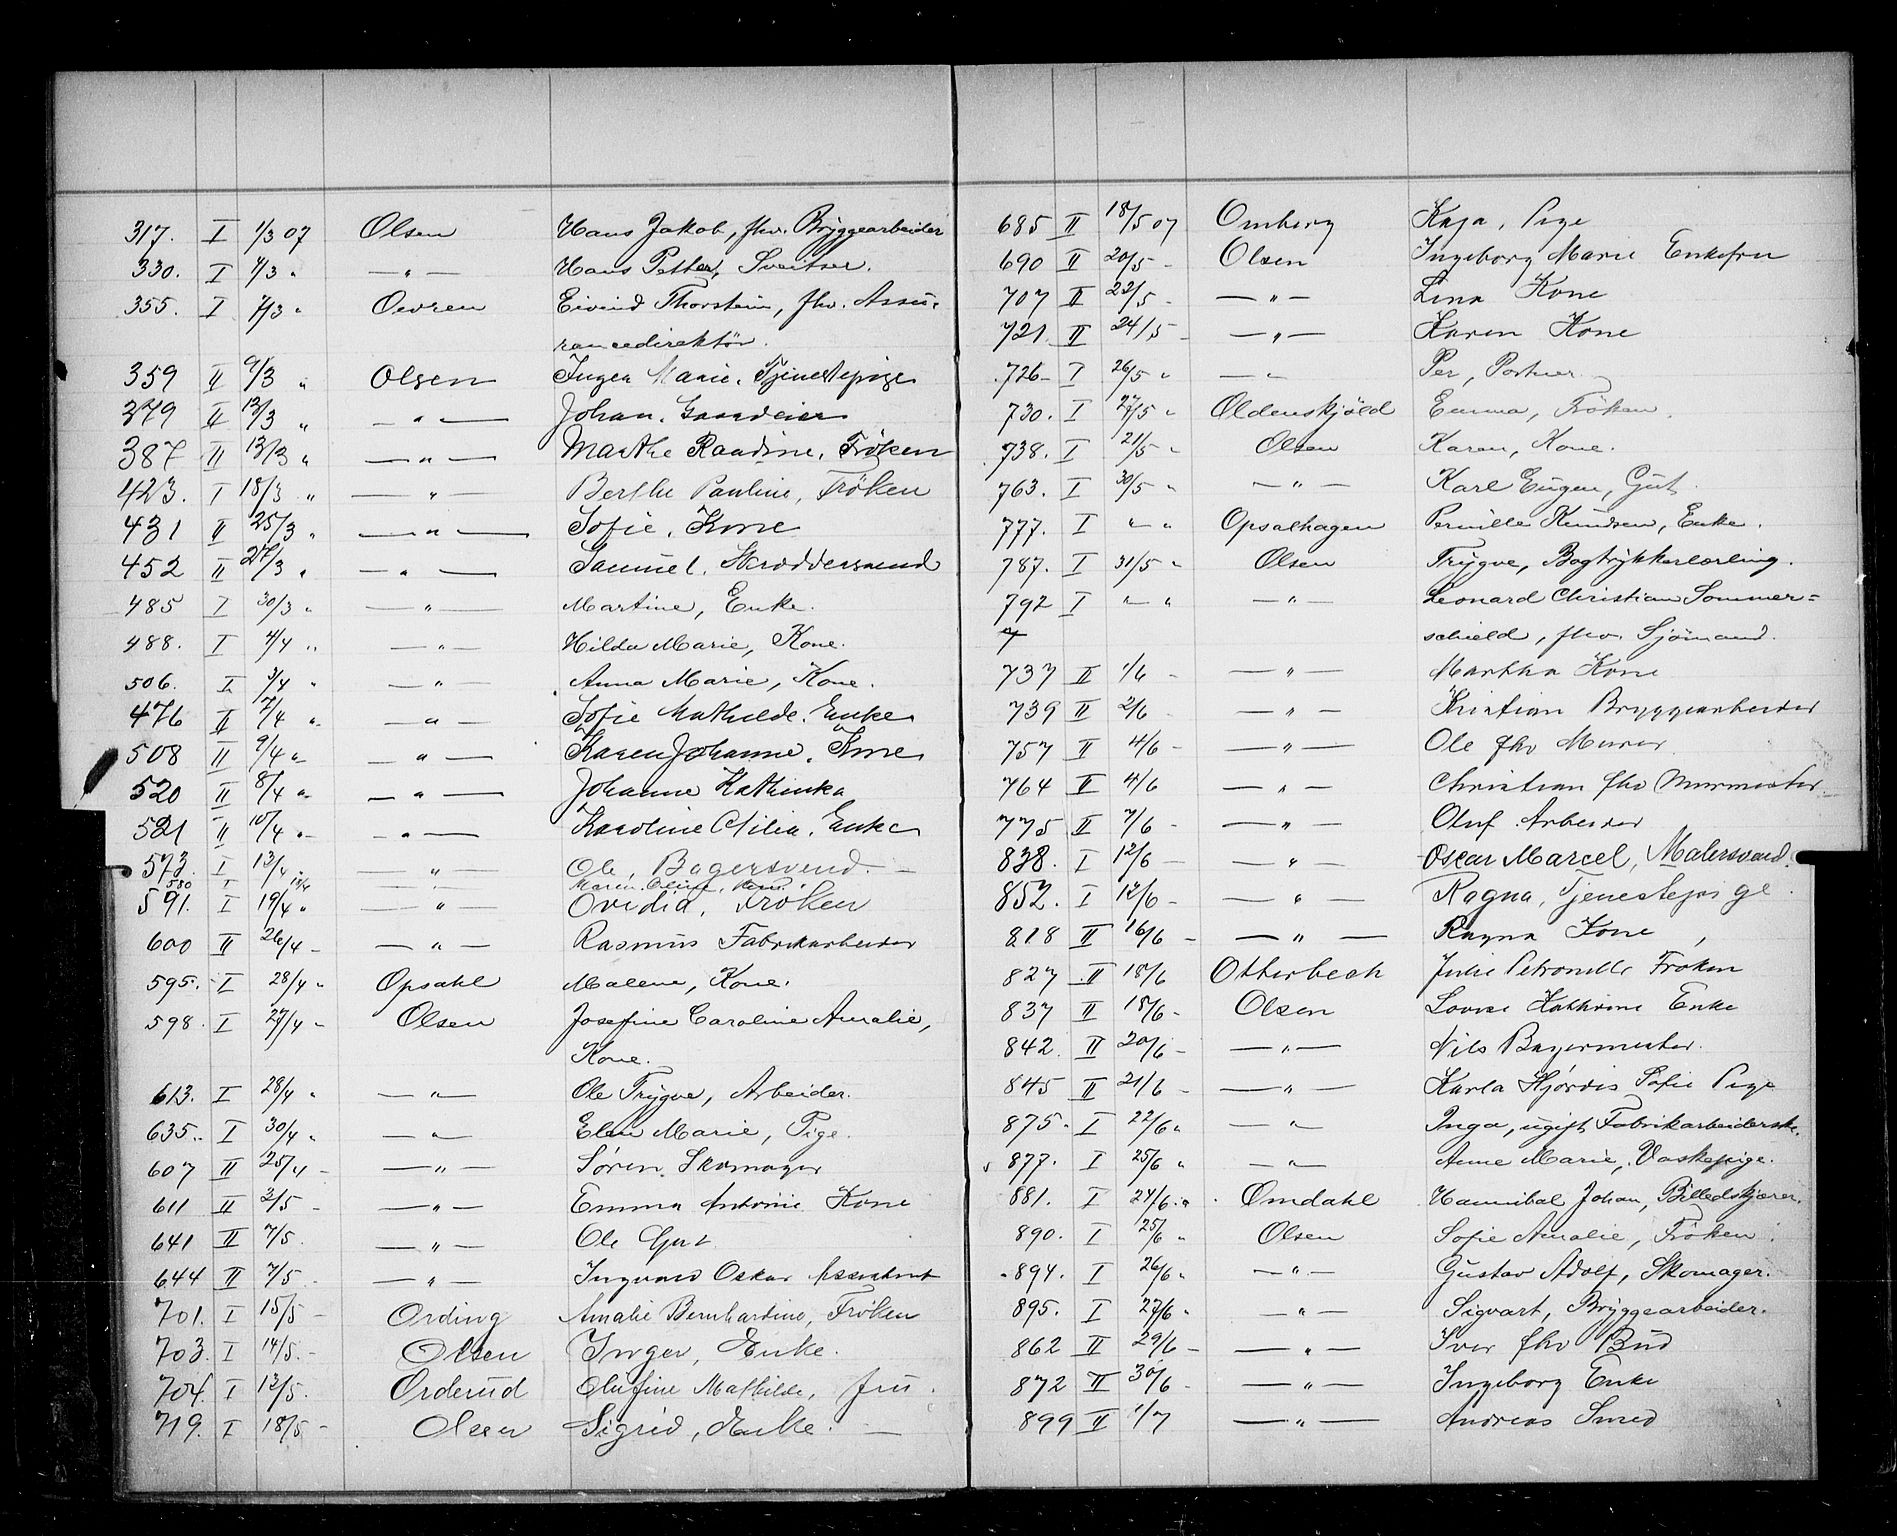 317. I 1/3 07 Olsen Hans Jakob, fhv. Bryggearbeider
330. I 4/3 " —"— Hans Petter, Sveitser.
355. I 7/3 " Oevren Eivind Thorstein, fhv. Assu-
rancedirektör.
359 II 9/3 " Olsen Inger Marie. Tjenestepige
379 II 12/3 " —"— Johan. Gaardeier
387 II 13/3 " —"— Marthe Raadine. Frøken
423. I 18/3 " —"— Berthe Pauline, Frøken
431 II 25/3 " —"— Sofie. Kone
452 II 27/3 " —"— Samuel. Skræddersvend
485 I 30/3 " —"— Martine, Enke.
488. I 4/4 " —"— Hilda Marie, Kone.
506. I 3/4 " —"— Anna Marie, Kone.
476 II 7/4 " —"— Sofie Mathilde. Enke
508 II 9/4 " —"— Karen Johanne. Kone
520 II 8/4 " —"— Johanne Kathinka
521 II 10/4 " —"— Karoline Cilia. Enke
573. I 13/4 " —"— Ole, Bagersvend. —
580 I 18/4 —"— Maren Oline, Kone.
591. I 19/4 " —"— Ovidia, Frøken
600 II 26/4 — —"— Rasmus Fabrikarbeider
595. I 28/4 " Opsahl Malene, Kone.
598. I 27/4 " Olsen Josefine Caroline Amalie,
Kone.
613. I 28/4 " —"— Ole Trygve, Arbeider.
635. I 30/4 " —"— Elen Marie, Pige.
607 II 25/4 — —"— Søren. Skomager
611 II 3/5 — —"— Emma Antonie Kone
641 II 7/5 —"— Ole Gut
644 II 7/5 — —"— Ingvard Oskar Assistent
701. I 15/5 — Ording Amalie Bernhardine, Frøken
703. I 14/5. — Olsen Inger, Enke.
704. I 13/5. Orderud Olufine Mathilde, Fru.
719. I 18/5 — Olsen Sigrid, Enke. —
685 II 18/5 07 Omberg Kaja, Pige
690 II 20/5 — Olsen Ingeborg Marie Enkefru
707 II 22/5 — —"— Lina Kone
721 II 24/5 — —"— Karen Kone
726 I 26/5 " —"— Per, Portner.
730. I 27/5 " Oldenskjöld Emma, Fröken.
738. I 21/5 " Olsen Karen, Kone.
763. I 30/5 " —"— Karl Eugen, Gut.
777. I " " Opsalhagen Pernille Knudsen, Enke.
787. I 31/5 " Olsen Trygve, Bogtrykkerlærling.
792 I " " —"— Leonard Christian Sommer=
schield, fhv. Sjömand.
737 II 1/6 — —"— Martha Kone
739 II 2/6 —"— Kristian Bryggearbeider
757 II 4/6 — —"— Ole fhv Murer
764 II 4/6 —"— Christian fhv Murmester.
775 II 7/6 — —"— Oluf Arbeider
838. I 12/6 — —"— Oscar Marcel, Malersvend.
852. I 12/6 — —"— Ragna, Tjenestepige.
818 II 16/6 — —"— Ragna Kone
827 II 18/6 Otterbech Julie Petronelle Frøken
837 II 18/6 — Olsen Lovise Kathrine Enke
842. II 20/6 — —"— Nils Bagermester.
845 II 21/6 — —"— Karla Hjørdis Sofie Pige
875. I 22/6 " —"— Inga, ugift Fabrikarbeiderske.
877. I 25/6 " —"— Anne Marie, Vaskepige.
881. I 24/6 " Omdahl Hannibal Johan, Billedskjærer.
890. I 25/6 " Olsen Sofie Amalie, Frøken.
894. I 26/6 " —"— Gustav Adolf, Skomager.
895. I 27/6 " —"— Sigvart, Bryggearbeider.
862 II 29/6 — —"— Iver fhv Bud
872 II 30/6 — —"— Ingeborg Enke
899 II 1/7 —"— Andreas Smed